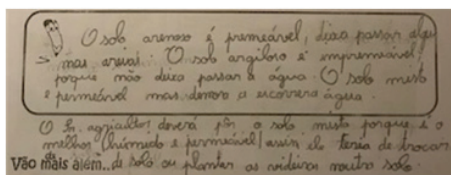 O solo arenoso é premeável, deixa passar algu
mas areias. O solo argiloso é impremeável,
porque não deixa passar a água. O solo misto
é permeável mas demora a escorrer a água.
O Sr. agricultor deverá pôr o solo misto porque é o
melhor (húmido e permeável) assim ele teria de trocar
Vão mais além... de solo ou plantar as videiras noutro solo.